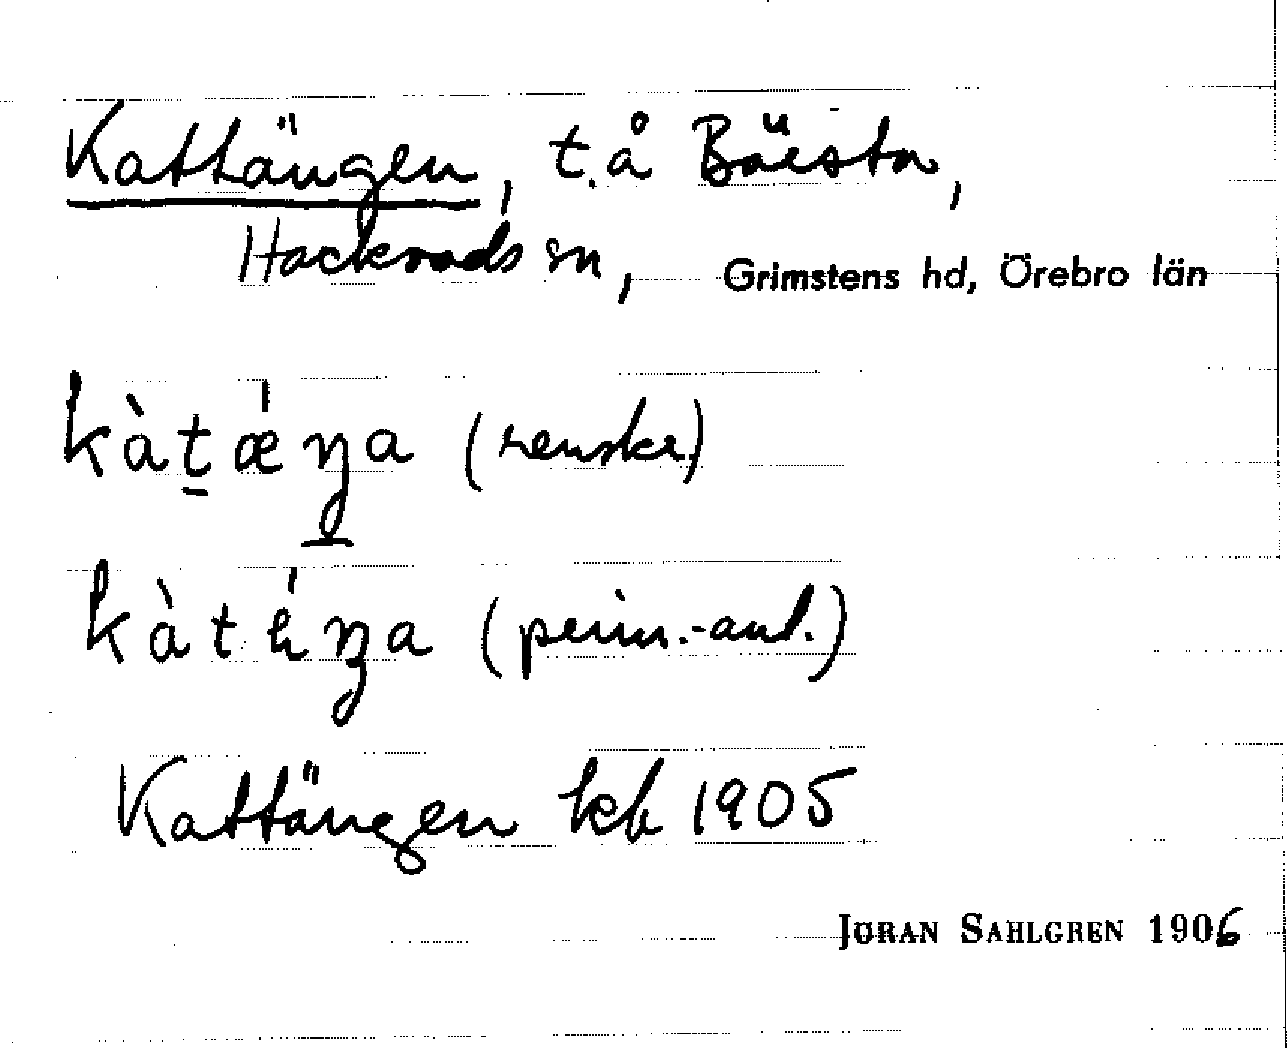 Kattängen, t. å Bäesta,
Hackvads sn, Grimstens hd, Örebro län
kàt̠ǽŋa (renskr.)
kàtéŋa (prim.-and.)
Kattängen kb 1905
JÖRAN SAHLGREN 1906